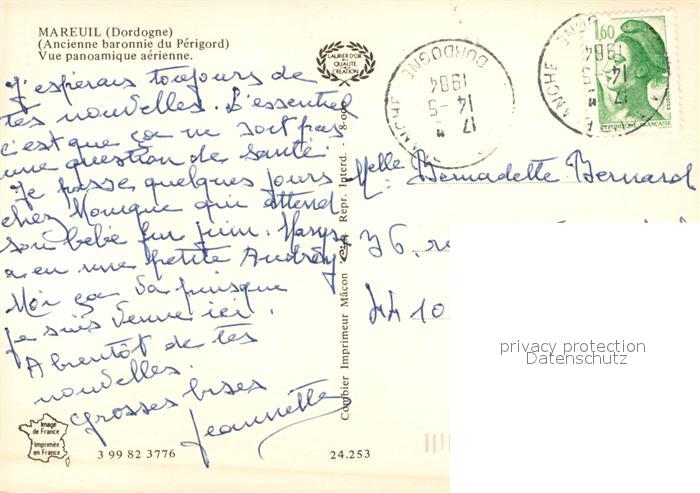 MAREUIL (Dordogne)
(Ancienne baronnie du Périgord)
Vue panoamique aérienne.
LAURIER D'OR
DE LA
QUALITÉ
DE LA
CRÉATION
J'espérais toujours de
tes nouvelles. L'essentiel
c'est que ça ne soit pas
une question de santé.
Je passe quelques jours
chez Monique qui attend
son bébé fin juin. Maryse
a eu une petite Audrey
Moi ça va puisque
je suis venue ici.
A bientôt de tes
nouvelles.
Grosses bises
Jeannette
Image
de France
Imprimée
en France
3 99 82 3776
24.253
Combier Imprimeur Mâcon
Repr. Interd.
DORDOGNE
17
14-5
1984
DORDOGNE
17
14-5
1984
1,60
REPUBLIQUE FRANÇAISE
Melle Bernadette Bernard
36.
44 10
privacy protection
Datenschutz